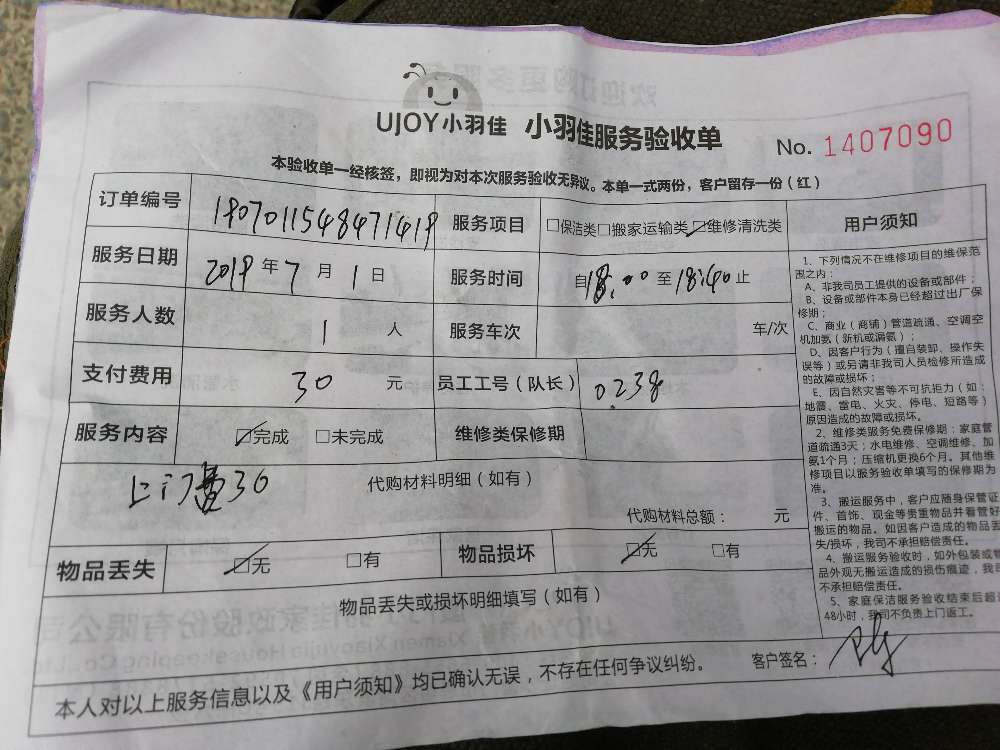 UJOY小羽佳 小羽佳服务验收单 No. 1407090
本验收单一经核签，即视为对本次服务验收无异议。本单一式两份，客户留存一份（红）
订单编号 1907011548471419 服务项目 □保洁类□搬家运输类☑维修清洗类
服务日期 2019年7月1日 服务时间 自18:00至18:40止
服务人数 1 人 服务车次 车/次
支付费用 30 元 员工工号（队长） 0238
服务内容 ☑完成 □未完成 维修类保修期
上门费30 代购材料明细（如有）
代购材料总额： 元
物品丢失 ☑无 □有 物品损坏 ☑无 □有
物品丢失或损坏明细填写（如有）
本人对以上服务信息以及《用户须知》均已确认无误，不存在任何争议纠纷。 客户签名：
用户须知
1、下列情况不在维修项目的维保范
围之内：
A、非我司员工提供的设备或部件；
B、设备或部件本身已经超过出厂保
修期；
C、商业（商铺）管道疏通、空调空
机加氨（新机或漏氨）；
D、因客户行为（擅自装卸、操作失
误等）或另请非我司人员检修所造成
的故障或损坏；
E、因自然灾害等不可抗拒力（如：
地震、雷电、火灾、停电、短路等）
原因造成的故障或损坏。
2、维修类服务免费保修期：家庭管
道疏通3天；水电维修、空调维修、加
氨1个月；压缩机更换6个月。其他维
修项目以服务验收单填写的保修期为
准。
3、搬运服务中，客户应随身保管证
件、首饰、现金等贵重物品并看管好
搬运的物品。如因客户造成的物品丢
失/损坏，我司不承担赔偿责任。
4、搬运服务验收时，如外包装或物
品外观无搬运造成的损伤痕迹，我司
不承担赔偿责任。
5、家庭保洁服务验收结束后超过
48小时，我司不负责上门返工。